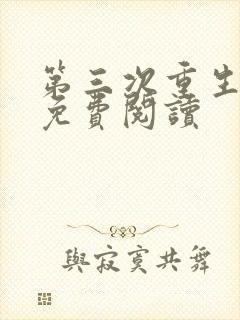 第三次重生
免費閱讀
與寂寞共舞